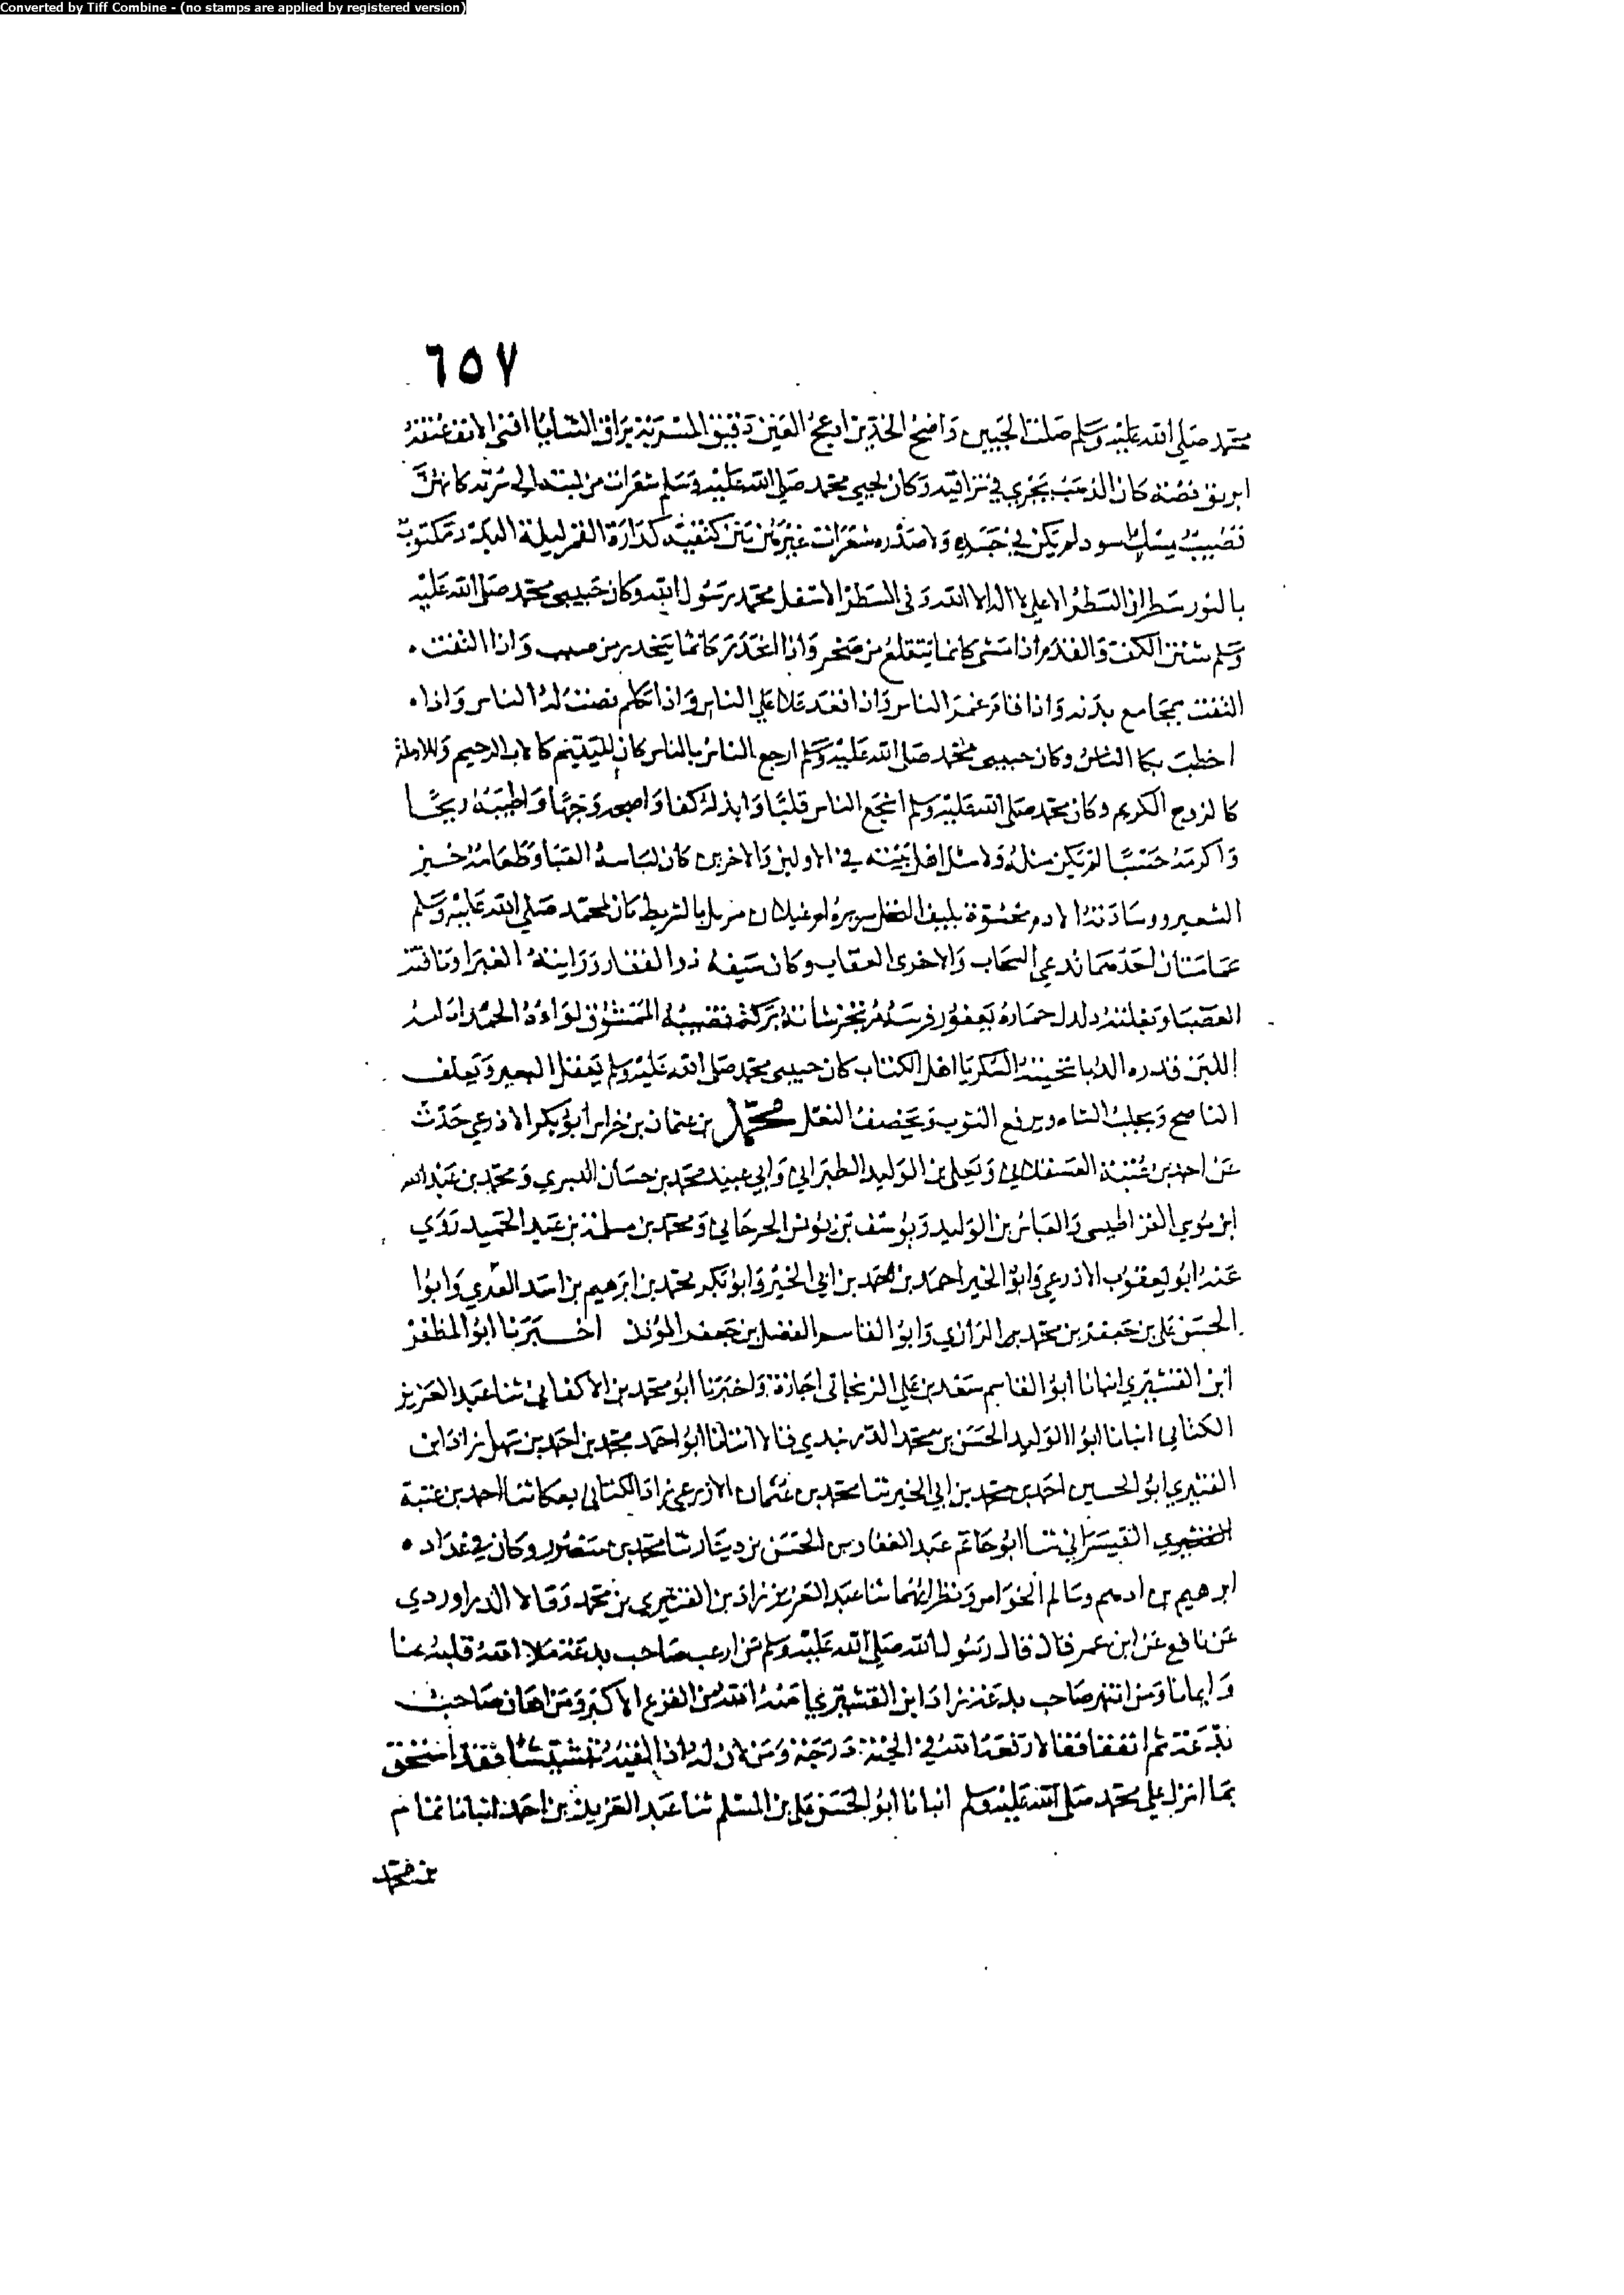 Converted by Tiff Combine - (no stamps are applied by registered version)
٦٥٧
محمد صلى الله عليه وسلم صلت الجبين واضح الخدين ادعج العين دقيق المسربة براق الثنايا اقنى الانف عنقه
ابريق فضة كان الذهب يجري في تراقيه وكان لحبيبي محمد صلى الله عليه وسلم شعرات من لبته الى سرته كانهن
قضيب مسك اسود لم يكن في جسده ولا صدره شعرات غيرهن بين كتفيه كدارة القمر ليلة البدر مكتوب
بالنور سطران السطر الاعلى لا اله الا الله وفي السطر الاسفل محمد رسول الله وكان حبيبي محمد صلى الله عليه
وسلم شثن الكف والقدم اذا مشى كانما يتقلع من صخر واذا انحدر كانما ينحدر من صبب واذا التفت
التفت بمجامع بدنه واذا قام غمر الناس واذا قعد علا على الناس واذا تكلم نصت له الناس واذا
خطب بكا الناس وكان حبيبي محمد صلى الله عليه وسلم ارحم الناس بالناس كان لليتيم كالاب الرحيم وللارملة
كالزوج الكريم وكان محمد صلى الله عليه وسلم اشجع الناس قلبا وابذله كفا واصبحه وجها واطيبه ريحا
واكرمه حسبا لم يكن مثله ولا مثل اهل بيته في الاولين والاخرين كان لباسه العبا وطعامه خبز
الشعير ووسادته الادم محشوة بليف النخل سريره ام غيلان مرمل بالشريط كان لمحمد صلى الله عليه وسلم
عمامتان احدهما تدعى السحاب والاخرى العقاب وكان سيفه ذو الفقار ورايته الغبرا وناقته
العضبا وبغلته دلدل حماره يعفور فرسه مرتجز شاته بركة قضيبه الممشوق لواءه الحمد ادامه
اللبن قدره الدبا تحيته السكر يا اهل الكتاب كان حبيبي محمد صلى الله عليه وسلم يعقل البعير ويعلف
الناضح ويحلب الشاه ويرقع الثوب ويخصف النعل محمد بن عثمان بن خراش ابو بكر الاذرعي حدث
عن احمد بن عتبة العسقلاني ويعلى بن الوليد الطبراني وابي عبيد محمد بن حسان البسري ومحمد بن عبد الله
ابن موسى القراطيسي والعباس بن الوليد ويوسف بن يونس الجرجاني ومحمد بن مسلمة بن عبد الحميد روى
عنه ابو يعقوب الاذرعي وابو الخير احمد بن محمد بن ابي الخير وابو بكر محمد بن ابرهيم بن اسد العدي وابوا
الحسن علي بن جعفر بن محمد الرازي وابو القاسم الفضل بن جعفر الموذن اخبرنا ابو المظفر
ابن القشيري انبانا ابو القاسم سعد بن علي الزنجاني اجازة واخبرنا ابو محمد بن الاكفاني ثنا عبد العزيز
الكتاني انبانا ابوا الوليد الحسن بن محمد الدربندي قالا انبانا ابو احمد محمد بن احمد بن سهل زاد ابن
القشيري ابو الحسين احمد بن محمد بن ابي الخير ثنا محمد بن عثمان الاذرعي زاد الكتاني بعكا ثنا احمد بن عتبة
القيسراني ثنا ابو حاتم عبد الغفار بن الحسن بن دينار ثنا محمد بن منصور وكان في عداد
ابرهيم بن ادهم وسالم الخواص ونظرائهما ثنا عبد العزيز زاد بن القشيري بن محمد وقالا الدراوردي
عن نافع عن ابن عمر قال قال رسول الله صلى الله عليه وسلم من ارعب صاحب بدعة ملا الله قلبه امنا
وايمانا ومن انتهر صاحب بدعة زاد ابن القشيري امنه الله من الفزع الاكبر ومن اهان صاحب
بدعة ثم اتفقا فقالا رفعه الله في الجنة درجة ومن لان له اذا لقيه تبشبشا فقد استخف
بما انزل على محمد صلى الله عليه وسلم انبانا ابو الحسن علي بن المسلم ثنا عبد العزيز بن احمد انبانا تمام
بن محمد